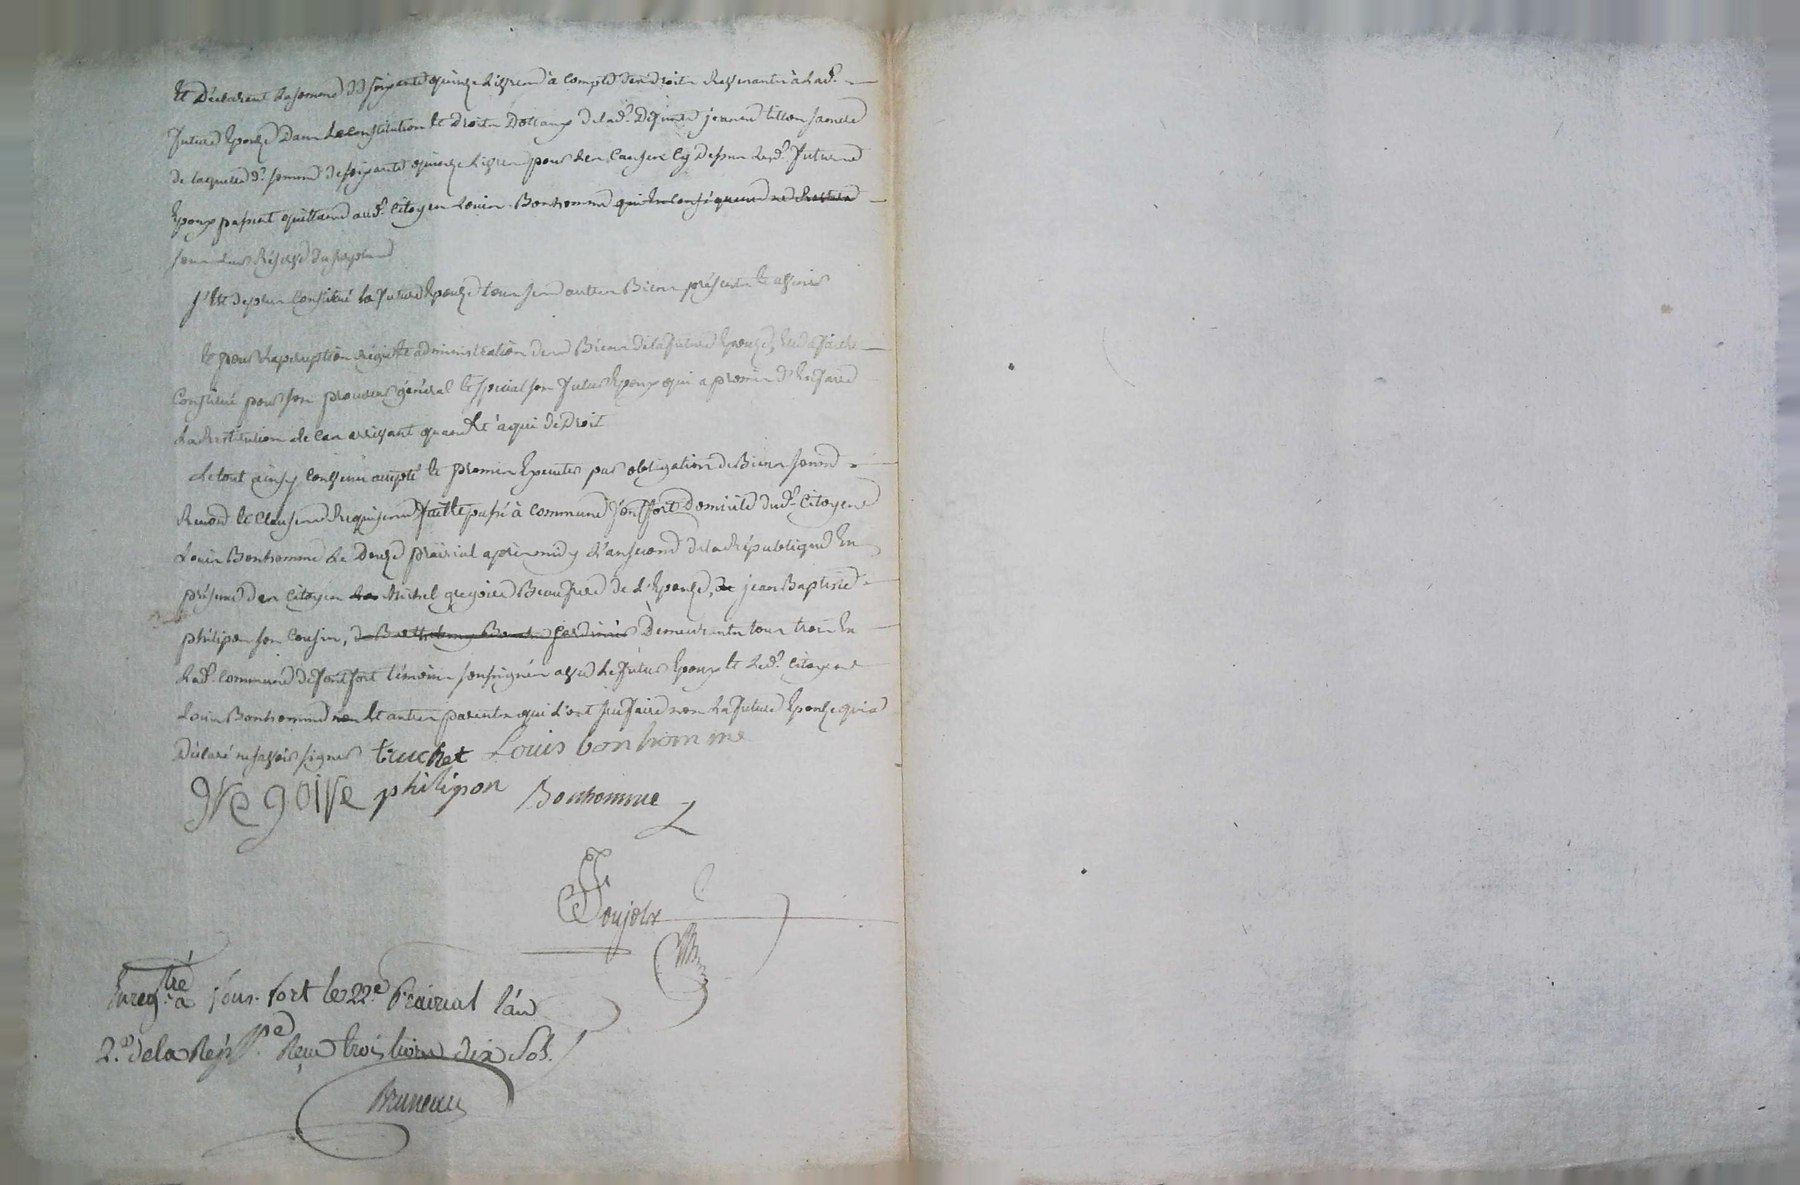 et déclarent la somme de soixante quinze livres à compte des droits revenants à lad.e
future épouze dans la constitution et droits dottaux de lad.e défunte jeanne sa mere
de laquelle d.e somme de soixante quinze livres pour les causes cy dessus led.s futurs
époux passent quittance aud.t citoyen Louis Bonhomme
sous leur réserve du surplus
s'est de plus constitué la future épouze tous ses autres Biens présents et avenir
et pour la perception régie et administration des Biens de la future épouze, elle a fait et
constitué pour son procureur général et spécial son futur époux qui a promis d'en faire
la restitution le cas arrivant quand et à qui de Droit
Le tout ainsy convenu accepté et promis exécuter par obligation de Biens
et clauses requises fait et passé à commune fontfort domicile dud.t citoyen
Louis Bonhomme le douze prairial après midy l'an second de la République en
présence des citoyens Michel gregoire Beaufrere de l'épouze, jean Baptiste
philipon son cousin, demeurants tous trois en
lad.e commune de fontfort témoins soussignés avec le futur époux et led.t citoyen
Louis Bonhomme et autres parents qui l'ont sçu faire non la future épouze qui a
déclaré ne savoir signer truchet Louis bonhomme
gregoire philipon Bonhomme
Poujolx
Enreg.tré à fons-fort le 22.e Prairial l'an
2.e de la Rep. Reçu trois livres dix Sols.
Bruneau